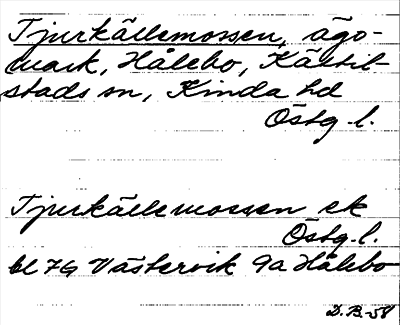 Tjurkällemossen, ägo-
mark, Hålebo, Kättil-
stads sn, Kinda hd
Östg.l.
Tjurkällemossen ek
Östg.l.
bl 7G Västervik 9a Hålebo
D.B.-58